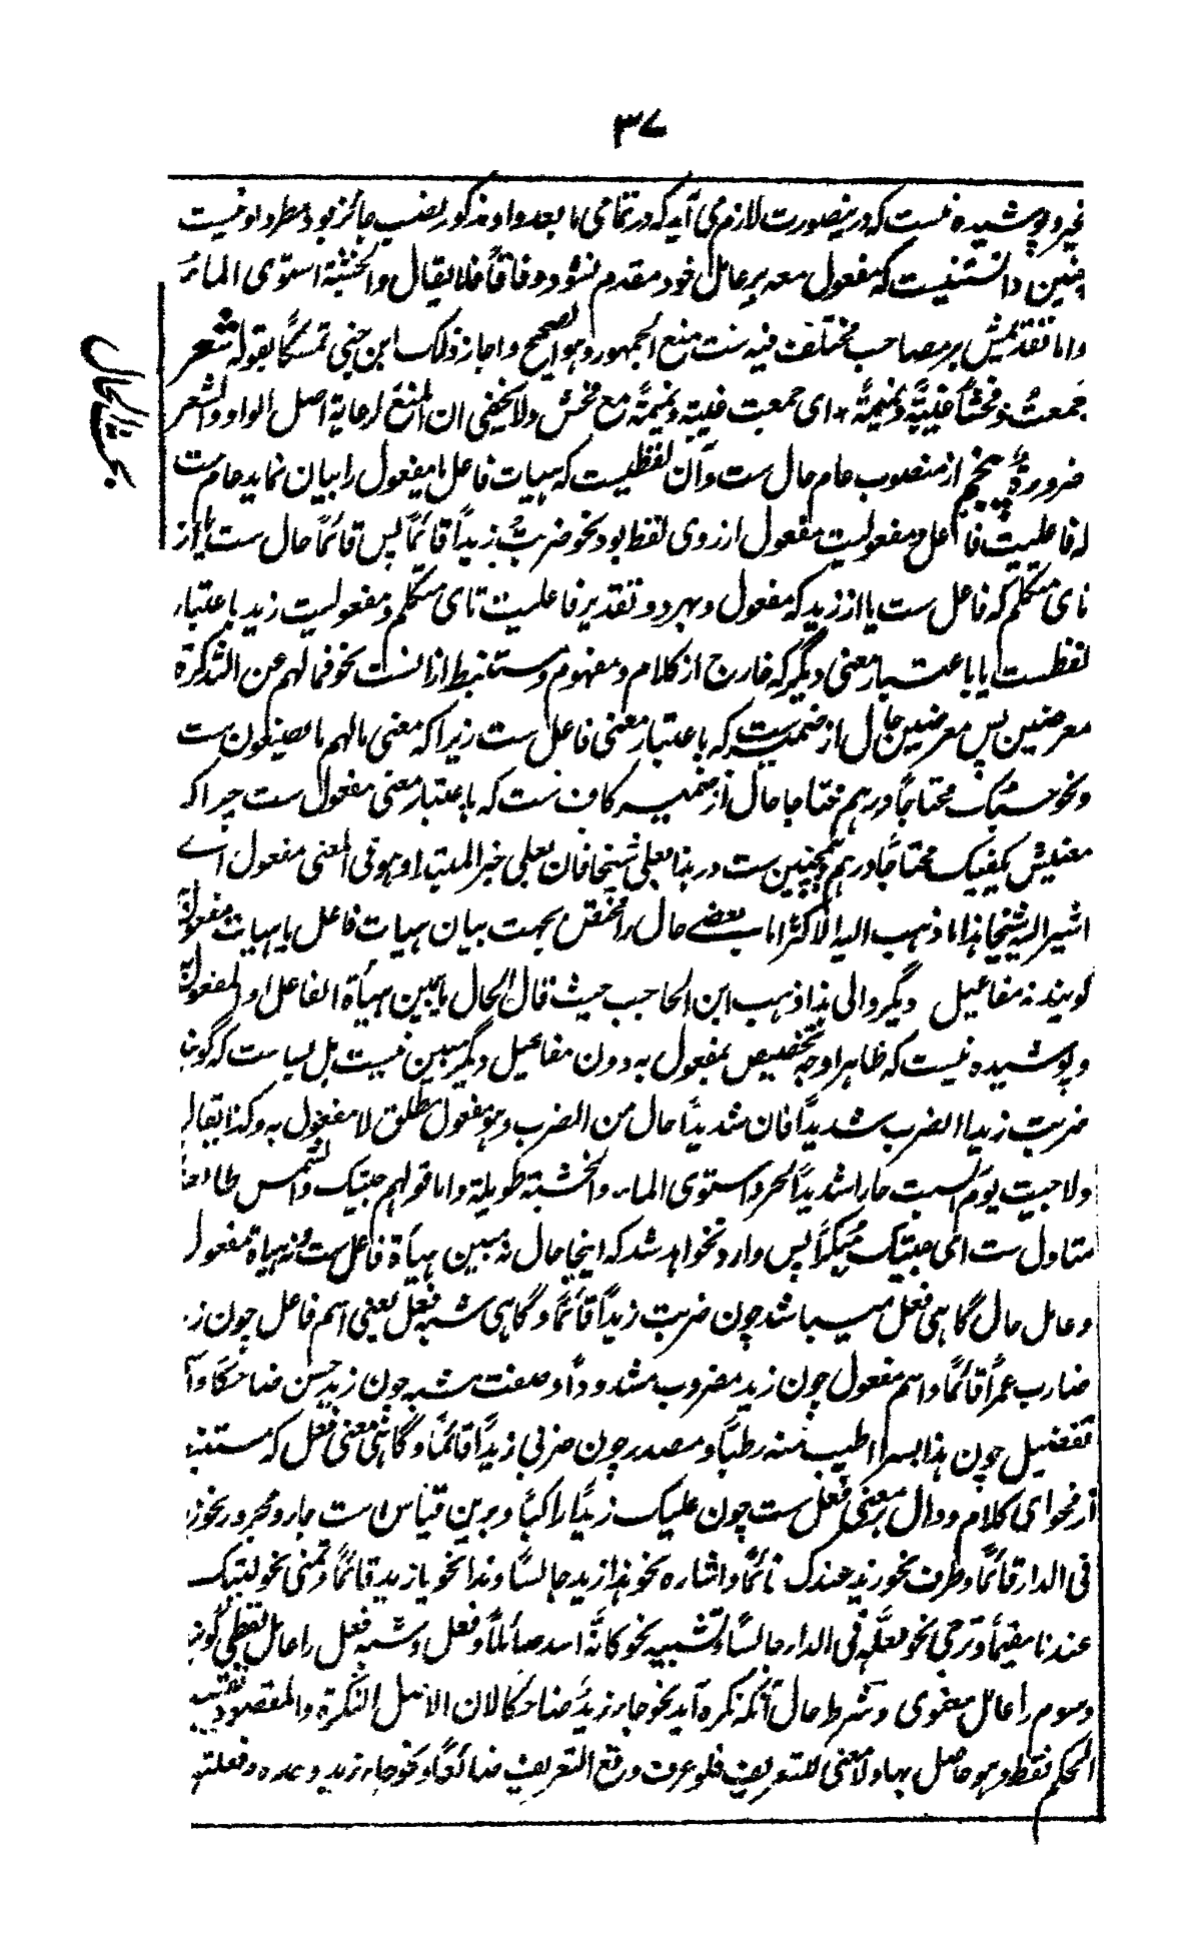 ۳۷
غیر و پوشیده نیست که درینصورت لازم می آید که در تمامی ما بعد واو مذکور نصب جائز بود مطرد او نیست
چنین دانستنیست که مفعول معه بر عامل خود مقدم نشود وفاقاً فلا یقال والخشبة استوی الماءُ
واما تقدیمش بر مصاحب مختلف فیه ست منع الجمهور وهو الصحیح واجاز ذلک ابن جنی تمسکاً بقوله شعر
جمعتُ وفحشاً غیبةً ونمیمةً ٭ ای جمعت غیبة ونمیمةً مع فحش ولا یخفی ان المنع لرعایة اصل الواو والشعر
ضرورةٌ پنجم از منصوب عام حال ست وآن لفظیست که هیات فاعل یا مفعول را بیان نماید عام ست
که فاعلیت فاعل و مفعولیت مفعول از روی لفظ بود نحو ضربتُ زیداً قائماً پس قائماً حال ست یا از
تای متکلم که فاعل ست یا از زید که مفعول و بهر دو تقدیر فاعلیت تای متکلم و مفعولیت زید باعتبار
لفظ ست یا باعتبار معنی دیگر که خارج از کلام و مفهوم و مستنبط ازانست نحو فما لهم عن التذکرة
معرضین پس معرضین حال از ضمیرست که باعتبار معنی فاعل ست زیرا که معنی مالهم ما یصنعون ست
ونحو حسبک محتاجاً درهم محتاجا حال از ضمیر کاف ست که باعتبار معنی مفعول ست چراکه
معنیش یکفیک محتاجاً درهم وهمچنین ست در هذا بعلی شیخا فان بعلی خبر المبتدا وهو فی المعنی مفعول اے
اشیر الیه شیخا هذا ما ذهب الیه الاکثر اما بعضے حال را مختص بجهت بیان هیات فاعل یا هیات مفعول به
گویند نه مفاعیل دیگر والی هذا ذهب ابن الحاجب حیث قال الحال ما یبین هیأة الفاعل او المفعول به
وپوشیده نیست که ظاهرا وجه تخصیص بمفعول به دون مفاعیل دیگر مبین نیست بل بسیاست که گویند
ضربت زیدا الضرب شدیداً فان شدیداً حال من الضرب وهو مفعول مطلق لا مفعول به وکذا یقال
ولا جیت یوم السبت حارا شدیداً لحر واستوی الماء والخشبة طویلة واما قولهم جیتک والشمس طالعة
متاول ست ای جیتک مبکراً پس وارد نخواهد شد که اینجا حال نه مبین هیأة فاعل ست ونه هیاة مفعول
وعامل حال گاهی فعل میباشد چون ضربت زیداً قائماً وگاهی شبه فعل یعنی اسم فاعل چون زید
ضارب عمراً قائماً واسم مفعول چون زید مضروب مشدوداً وصفت مشبه چون زید حسن ضاحکاً و
تفضیل چون هذا بسرا اطیب منه رطباً ومصدر چون ضربی زیداً قائماً وگاهی معنی فعل که مستنبط
از فحوای کلام ودال بر معنی فعل ست چون علیک زیداً راکباً وبرین قیاس ست جار ومجرور نحو زید
فی الدار قائماً وظرف نحو زید عندک نائماً واشاره نحو هذا زید جالساً وندا نحو یا زید قائماً وتمنی نحو لیتک
عندنا مقیماً وترجی نحو لعلّه فی الدار جالساً وتشبیه نحو کانّه اسد صائلاً وفعل وشبه فعل را عامل لفظی گویند
وسوم را عامل معنوی وشرط حال آنکه نکره آید نحو جاء زیدٌ ضاحکا لان الاصل النکرة والمقصود تقیید
الحکم فقط وهو حاصل بها ولا معنی للتعریف فلو عرف وقع التعریف ضائعاً ونحو جاء زید وحده وفعلته
بحث الحال